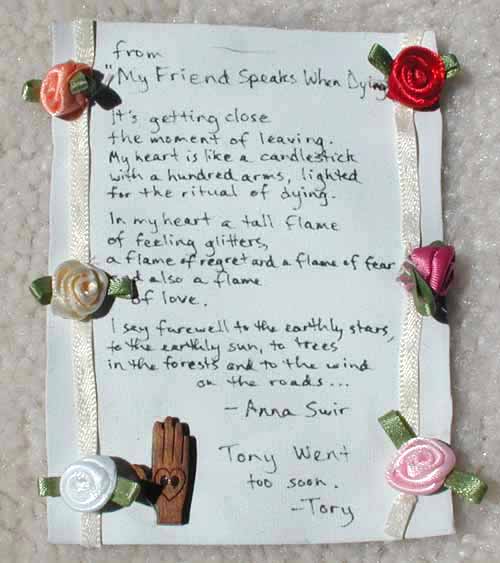 from
"My Friend Speaks When Dying
It's getting close
the moment of leaving.
My heart is like a candlestick
with a hundred arms, lighted
for the ritual of dying.
In my heart a tall flame
of feeling glitters,
a flame of regret and a flame of fear
also a flame
of love.
I say farewell to the earthly stars,
to the earthly sun, to trees
in the forests and to the wind
on the roads...
- Anna Swir
Tony Went
too soon.
-Tory